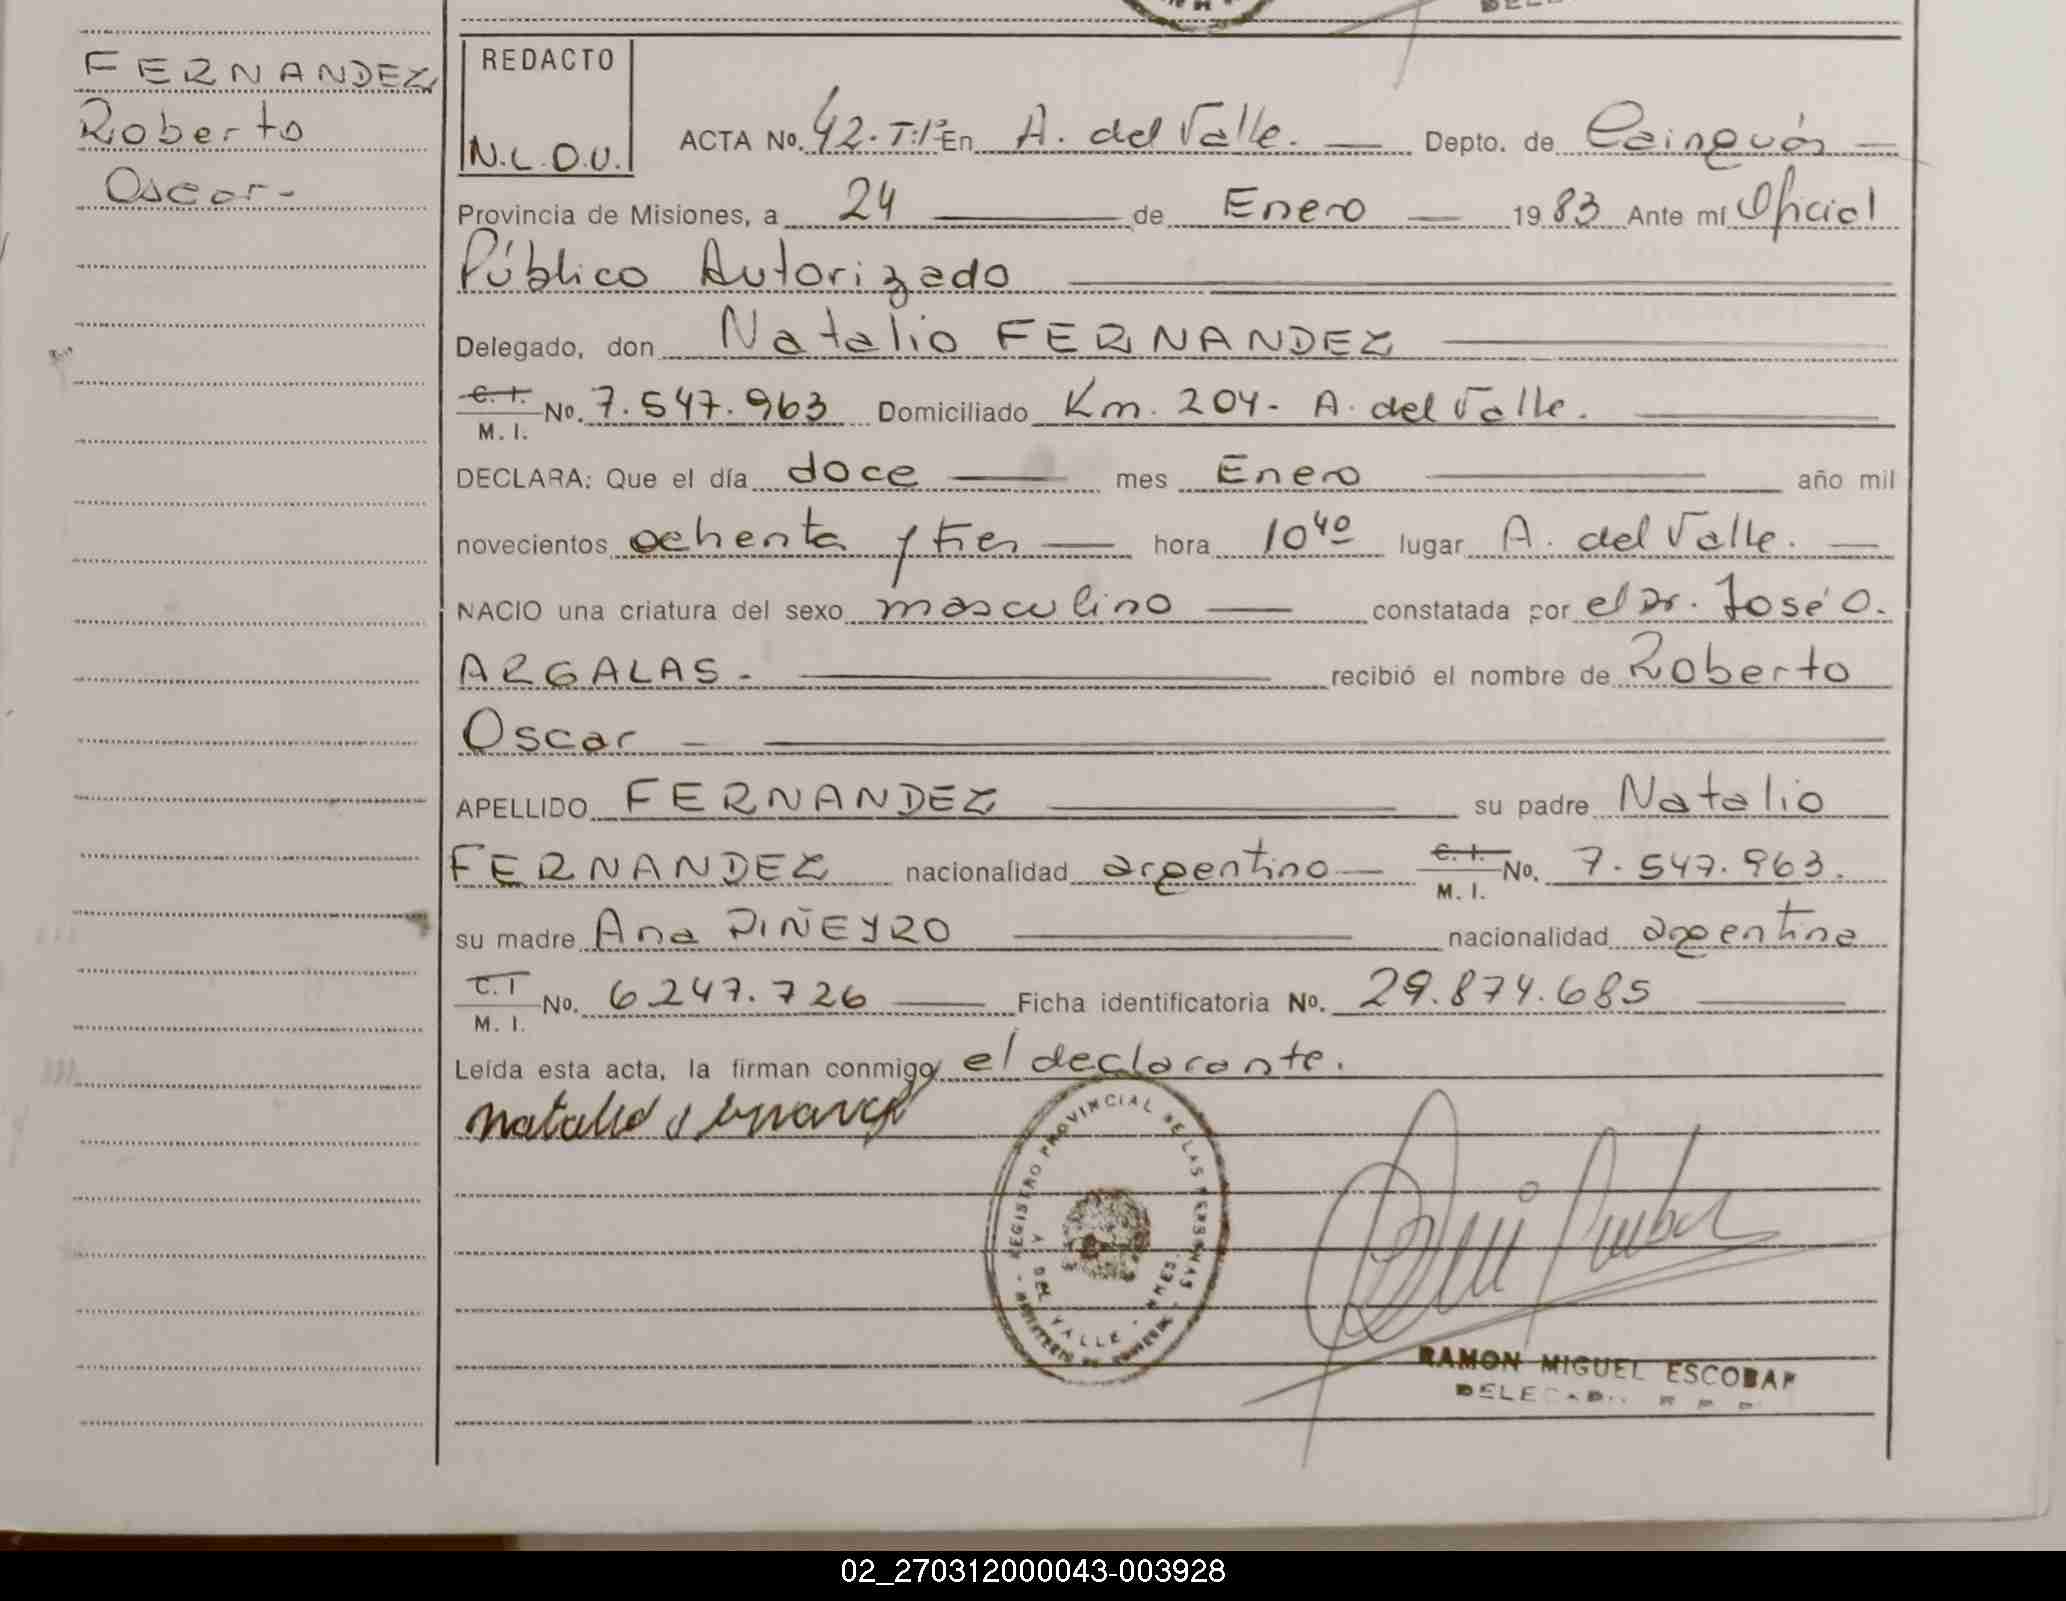 FERNANDEZ
Roberto
Oscar-
REDACTO
N.L.O.U.
ACTA No. 42. T:1º En A. del Valle. Depto. de Cainguás
Provincia de Misiones, a 24 de Enero 1983 Ante mí Oficial
Público Autorizado
Delegado, don Natalio FERNANDEZ
C. I. M. I. No. 7.547.963 Domiciliado Km. 204- A. del Valle.
DECLARA: Que el día doce mes Enero año mil
novecientos ochenta y tres hora 10 40 lugar A. del Valle.
NACIO una criatura del sexo masculino constatada por el Dr. José O.
ARGALAS. recibió el nombre de Roberto
Oscar
APELLIDO FERNANDEZ su padre Natalio
FERNANDEZ nacionalidad argentino C. I. M. I. No. 7.547.963.
su madre Ana PIÑEYRO nacionalidad argentina
C. I M. I. No. 6.247.726 Ficha identificatoria No. 29.874.685
Leída esta acta, la firman conmigo el declarante.
REGISTRO PROVINCIAL DE LAS PERSONAS
DEL VALLE - MNES.
RAMON MIGUEL ESCOBAR
02_270312000043-003928